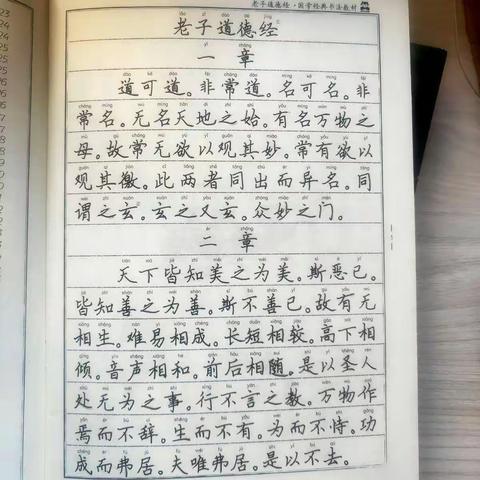 老子道德经·国学经典书法教材
老子道德经
一章
道可道。非常道。名可名。非
常名。无名天地之始。有名万物之
母。故常无欲以观其妙。常有欲以
观其徼。此两者同出而异名。同
谓之玄。玄之又玄。众妙之门。
二章
天下皆知美之为美。斯恶已。
皆知善之为善。斯不善已。故有无
相生。难易相成。长短相较。高下相
倾。音声相和。前后相随。是以圣人
处无为之事。行不言之教。万物作
焉而不辞。生而不有。为而不恃。功
成而弗居。夫唯弗居。是以不去。